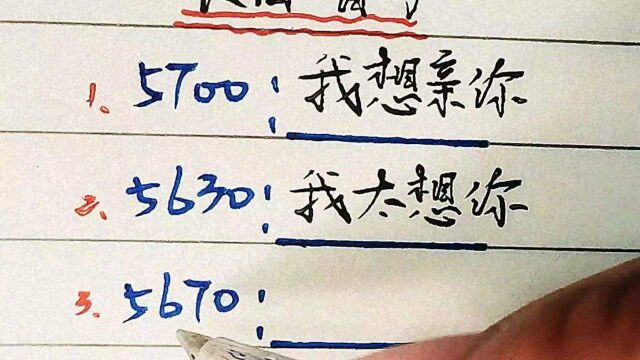 1. 5700: 我想亲你
2. 5630: 我太想你
3. 5670: